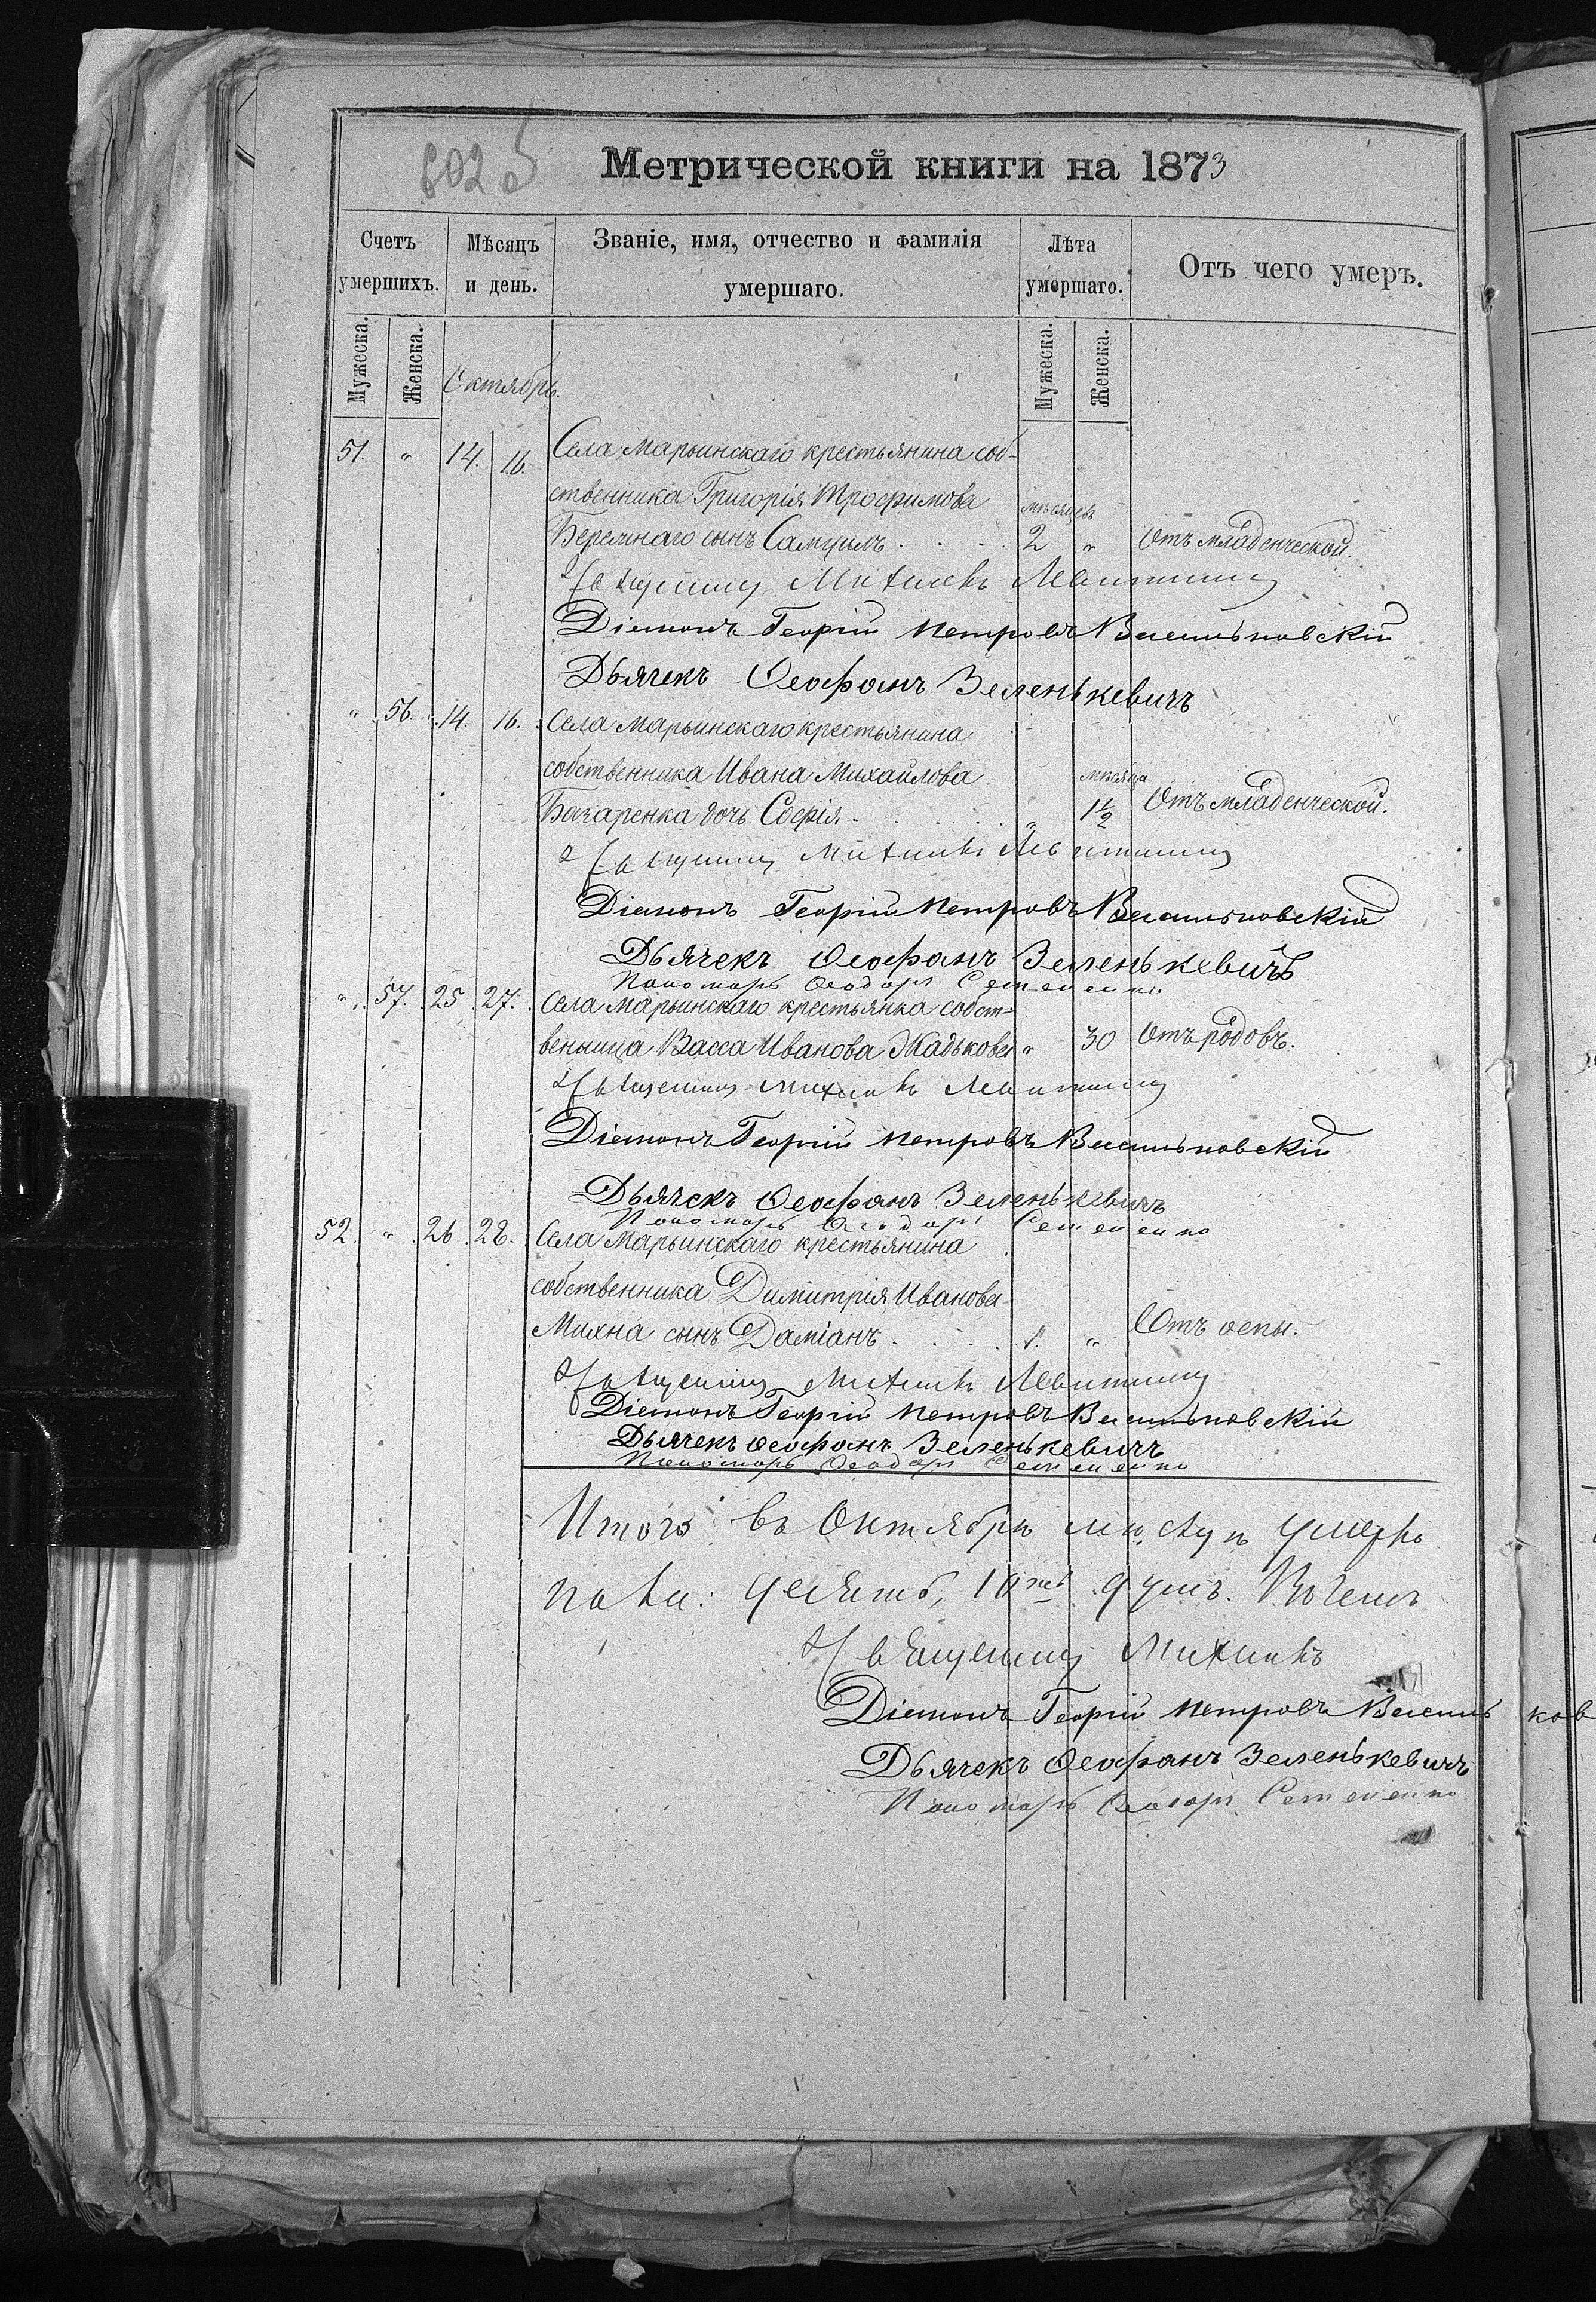 602 об
Метрической книги на 1873
Счетъ умершихъ.
Мѣсяцъ и день.
Званіе, имя, отчество и фамилія умершаго.
Лѣта умершаго.
Отъ чего умеръ.
Мужеска.
Женска.
Октябрь.
Мужеска.
Женска.
51. " 14. 16. Села Марьинскаго крестьянина соб-
ственника Григорія Трофимова мѣсяцевъ
Бережнаго сынъ Самуилъ. 2 " Отъ младенческой.
Священникъ Михаилъ Левитскій
Діаконъ Георгій Петровъ Васильковскій
Дьячекъ Ѳеофанъ Зеленькевичъ
" 56. 14. 16. Села Марьинскаго крестьянина
собственника Ивана Михайлова мѣсяца
Базаренка дочь Софія. " 1½ Отъ младенческой.
Священникъ Михаилъ Левитскій
Діаконъ Георгій Петровъ Васильковскій
Дьячекъ Ѳеофанъ Зеленькевичъ
Пономарь Ѳеодоръ
" 57. 25. 27. Села Марьинскаго крестьянка собст-
венница Васса Иванова " 30 Отъ родовъ.
Священникъ Михаилъ Левитскій
Діаконъ Георгій Петровъ Васильковскій
Дьячекъ Ѳеофанъ Зеленькевичъ
Пономарь Ѳеодоръ
52. " 26. 28. Села Марьинскаго крестьянина
собственника Димитрія Иванова
Михна сынъ Даміанъ. 1. " Отъ оспы.
Священникъ Михаилъ Левитскій
Діаконъ Георгій Петровъ Васильковскій
Дьячекъ Ѳеофанъ Зеленькевичъ
Пономарь Ѳеодоръ
Итого въ Октябрѣ мѣсяцѣ умерло
десять, 10ть душъ. Въ чемъ
Священникъ Михаилъ
Діаконъ Георгій Петровъ Васильков
Дьячекъ Ѳеофанъ Зеленькевичъ
Пономарь Ѳеодоръ